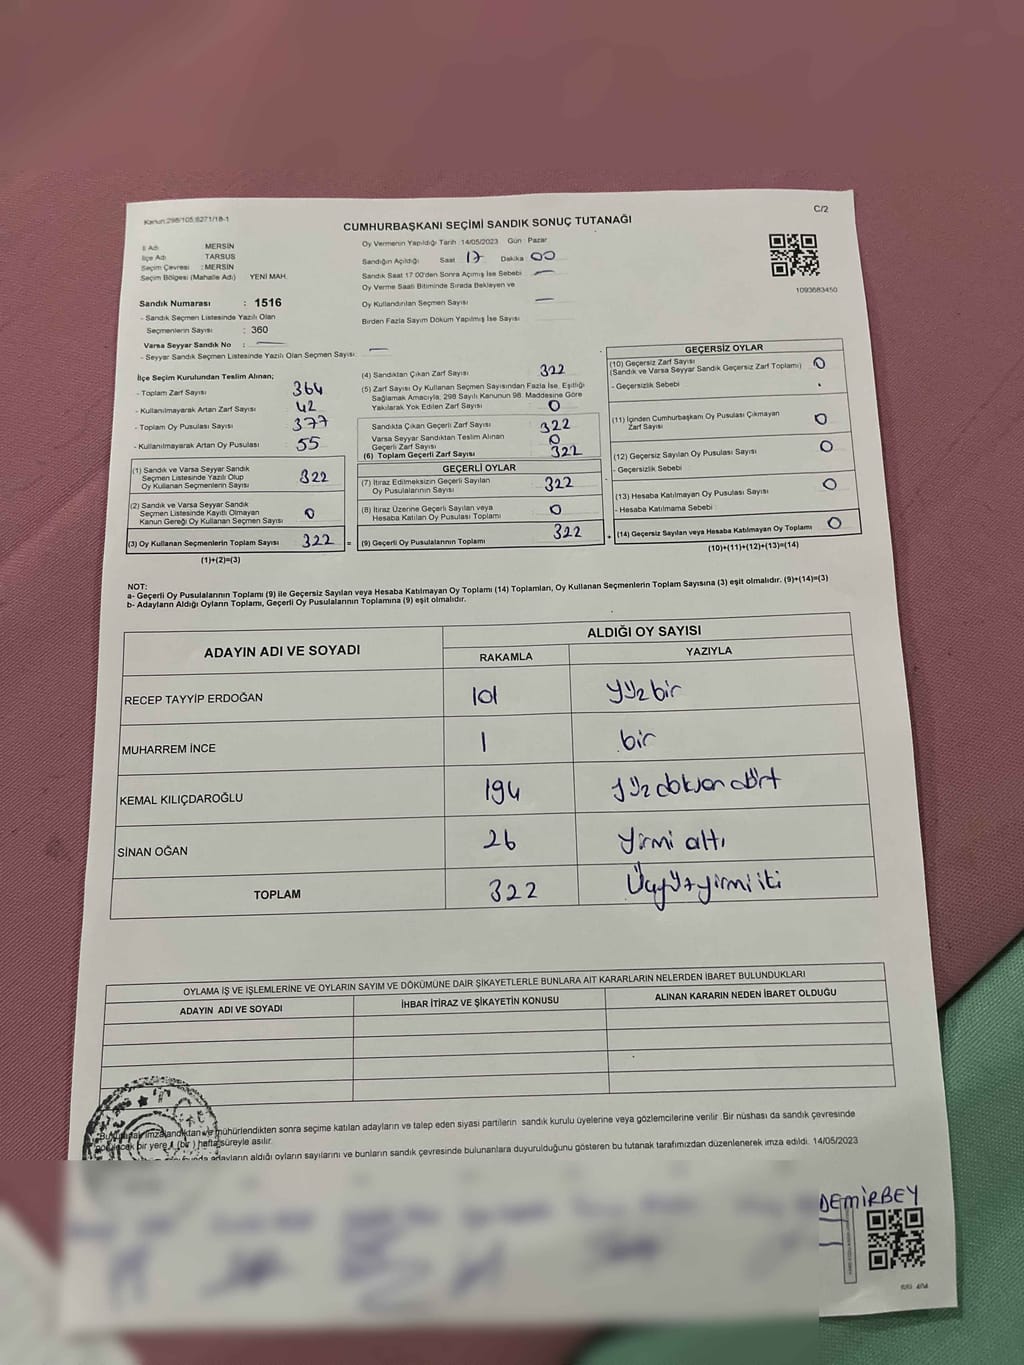 Kanun:298/105;6271/18-1
C/2
CUMHURBAŞKANI SEÇİMİ SANDIK SONUÇ TUTANAĞI
İl Adı MERSİN
İlçe Adı TARSUS
Seçim Çevresi : MERSİN
Seçim Bölgesi (Mahalle Adı) YENİ MAH.
Oy Vermenin Yapıldığı Tarih 14/05/2023 Gün Pazar
Sandığın Açıldığı Saat 17 Dakika 00
Sandık Saat 17:00'den Sonra Açımış İse Sebebi —
Oy Verme Saati Bitiminde Sırada Bekleyen ve
Oy Kullandırılan Seçmen Sayısı —
Birden Fazla Sayım Döküm Yapılmış İse Sayısı
1093683450
Sandık Numarası : 1516
- Sandık Seçmen Listesinde Yazılı Olan
Seçmenlerin Sayısı : 360
Varsa Seyyar Sandık No : —
- Seyyar Sandık Seçmen Listesinde Yazılı Olan Seçmen Sayısı: —
İlçe Seçim Kurulundan Teslim Alınan;
- Toplam Zarf Sayısı 364
- Kullanılmayarak Artan Zarf Sayısı 42
- Toplam Oy Pusulası Sayısı 377
- Kullanılmayarak Artan Oy Pusulası 55
(1) Sandık ve Varsa Seyyar Sandık
Seçmen Listesinde Yazılı Olup
Oy Kullanan Seçmenlerin Sayısı 322
(2) Sandık ve Varsa Seyyar Sandık
Seçmen Listesinde Kayıtlı Olmayan
Kanun Gereği Oy Kullanan Seçmen Sayısı 0
(3) Oy Kullanan Seçmenlerin Toplam Sayısı 322 =
(1)+(2)=(3)
(4) Sandıktan Çıkan Zarf Sayısı 322
(5) Zarf Sayısı Oy Kullanan Seçmen Sayısından Fazla İse, Eşitliği
Sağlamak Amacıyla, 298 Sayılı Kanunun 98. Maddesine Göre
Yakılarak Yok Edilen Zarf Sayısı 0
Sandıkta Çıkan Geçerli Zarf Sayısı 322
Varsa Seyyar Sandıktan Teslim Alınan
Geçerli Zarf Sayısı 0
(6) Toplam Geçerli Zarf Sayısı 322
GEÇERLİ OYLAR
(7) İtiraz Edilmeksizin Geçerli Sayılan
Oy Pusulalarının Sayısı 322
(8) İtiraz Üzerine Geçerli Sayılan veya
Hesaba Katılan Oy Pusulası Toplamı 0
(9) Geçerli Oy Pusulalarının Toplamı 322 +
GEÇERSİZ OYLAR
(10) Geçersiz Zarf Sayısı 0
(Sandık ve Varsa Seyyar Sandık Geçersiz Zarf Toplamı)
- Geçersizlik Sebebi
(11) İçinden Cumhurbaşkanı Oy Pusulası Çıkmayan
Zarf Sayısı 0
(12) Geçersiz Sayılan Oy Pusulası Sayısı 0
- Geçersizlik Sebebi
(13) Hesaba Katılmayan Oy Pusulası Sayısı 0
- Hesaba Katılmama Sebebi
(14) Geçersiz Sayılan veya Hesaba Katılmayan Oy Toplamı 0
(10)+(11)+(12)+(13)=(14)
NOT:
a- Geçerli Oy Pusulalarının Toplamı (9) ile Geçersiz Sayılan veya Hesaba Katılmayan Oy Toplamı (14) Toplamları, Oy Kullanan Seçmenlerin Toplam Sayısına (3) eşit olmalıdır. (9)+(14)=(3)
b- Adayların Aldığı Oyların Toplamı, Geçerli Oy Pusulalarının Toplamına (9) eşit olmalıdır.
ADAYIN ADI VE SOYADI
ALDIĞI OY SAYISI
RAKAMLA YAZIYLA
RECEP TAYYİP ERDOĞAN 101 yüzbir
MUHARREM İNCE 1 bir
KEMAL KILIÇDAROĞLU 194 yüzdoksandört
SİNAN OĞAN 26 yirmi altı
TOPLAM 322 Üçyüzyirmiiki
OYLAMA İŞ VE İŞLEMLERİNE VE OYLARIN SAYIM VE DÖKÜMÜNE DAİR ŞİKAYETLERLE BUNLARA AİT KARARLARIN NELERDEN İBARET BULUNDUKLARI
ADAYIN ADI VE SOYADI İHBAR İTİRAZ VE ŞİKAYETİN KONUSU ALINAN KARARIN NEDEN İBARET OLDUĞU
imzalandıktan ve mühürlendikten sonra seçime katılan adayların ve talep eden siyasi partilerin sandık kurulu üyelerine veya gözlemcilerine verilir. Bir nüshası da sandık çevresinde
bir yere 1 (bir) hafta süreyle asılır.
adayların aldığı oyların sayılarını ve bunların sandık çevresinde bulunanlara duyurulduğunu gösteren bu tutanak tarafımızdan düzenlenerek imza edildi. 14/05/2023
DEMİRBEY